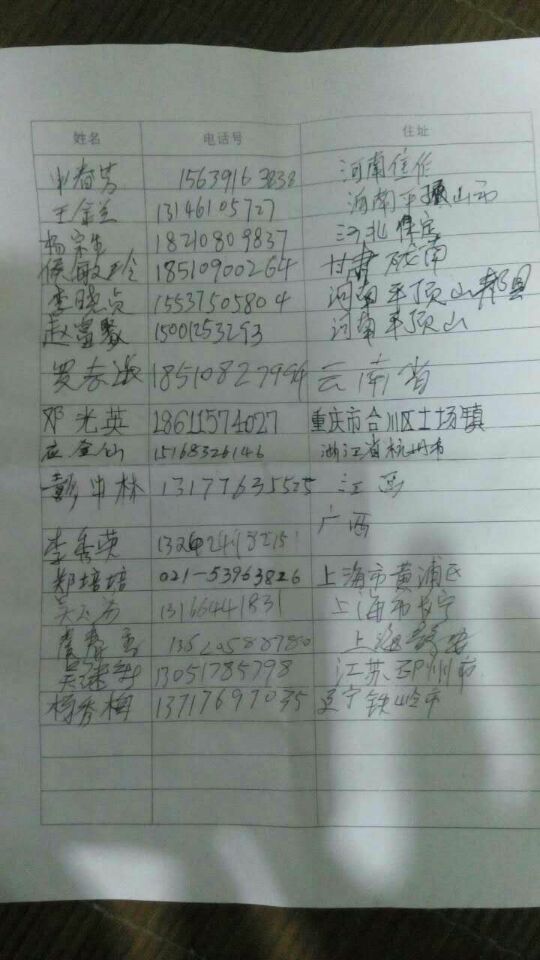 姓名 电话号 住址
15639163838 河南焦作
王金兰 13146105727 河南平顶山市
杨宗生 18210809837 河北保定
侯敏玲 18510900264 甘肃陇南
李晓贞 15537505804 河南平顶山郏县
赵富 15001253293 河南平顶山
罗春 云南省
邓光英 18611574027 重庆市合川区土场镇
应金仙 15168326146 浙江省杭州市
彭中林 江西
李秀英 广西
郑培培 021-53963826 上海市黄浦区
13166441831 上海市长宁
上海
13051785798 江苏邳州市
杨秀梅 13717697035 辽宁铁岭市